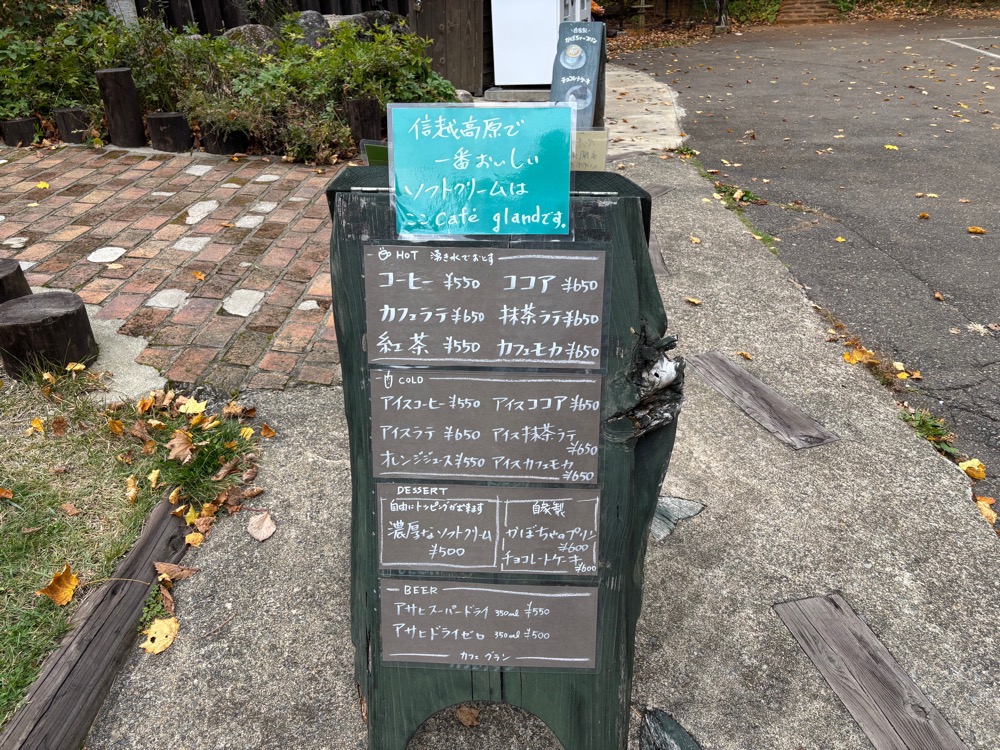 自家製
かぼちゃのプリン
チョコレートケーキ
信越高原で
一番おいしい
ソフトクリームは
ここ Café glandです。
HOT 湧き水でおとす
コーヒー ¥550 ココア ¥650
カフェラテ ¥650 抹茶ラテ ¥650
紅茶 ¥550 カフェモカ ¥650
COLD
アイスコーヒー ¥550 アイスココア ¥650
アイスラテ ¥650 アイス抹茶ラテ
¥650
オレンジジュース ¥550 アイスカフェモカ
¥650
DESSERT
自由にトッピングが出来ます
濃厚なソフトクリーム
¥500
自家製
かぼちゃのプリン
¥600
チョコレートケーキ ¥600
BEER
アサヒスーパードライ 350ml ¥550
アサヒドライゼロ 350ml ¥500
カフェ グラン